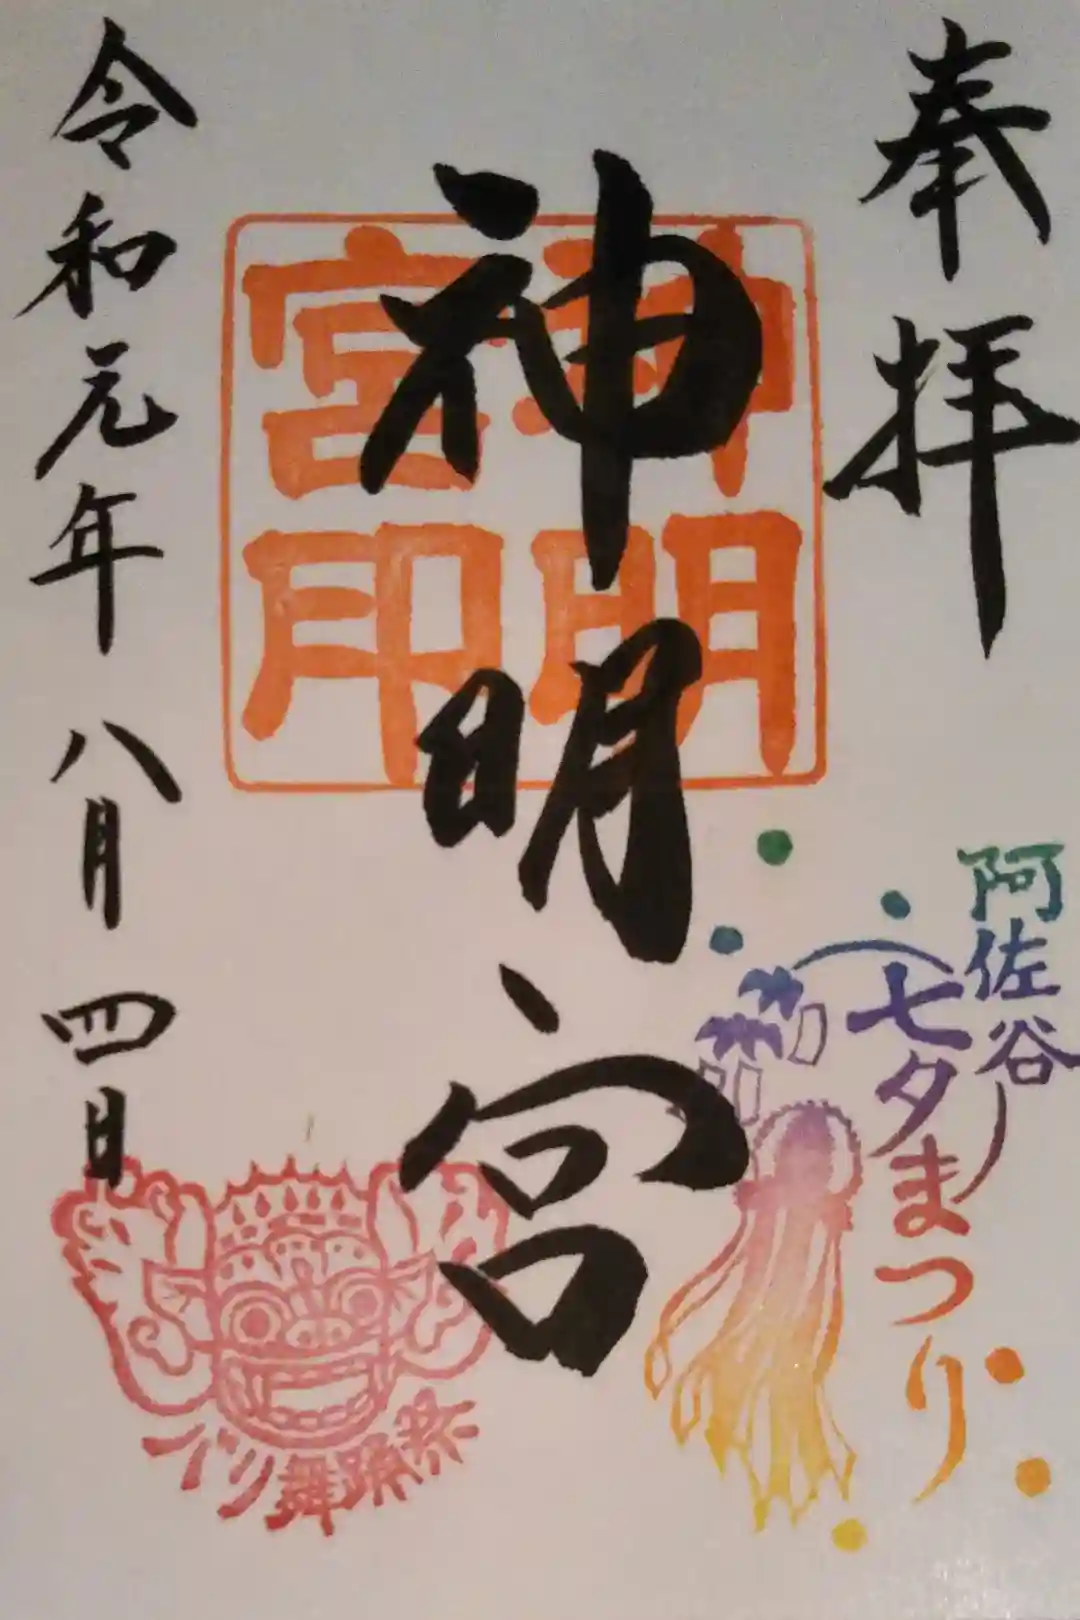 奉拝
神明宮
神明
宮印
令和元年 八月 四日
阿佐谷
七夕まつり
バリ舞踊祭